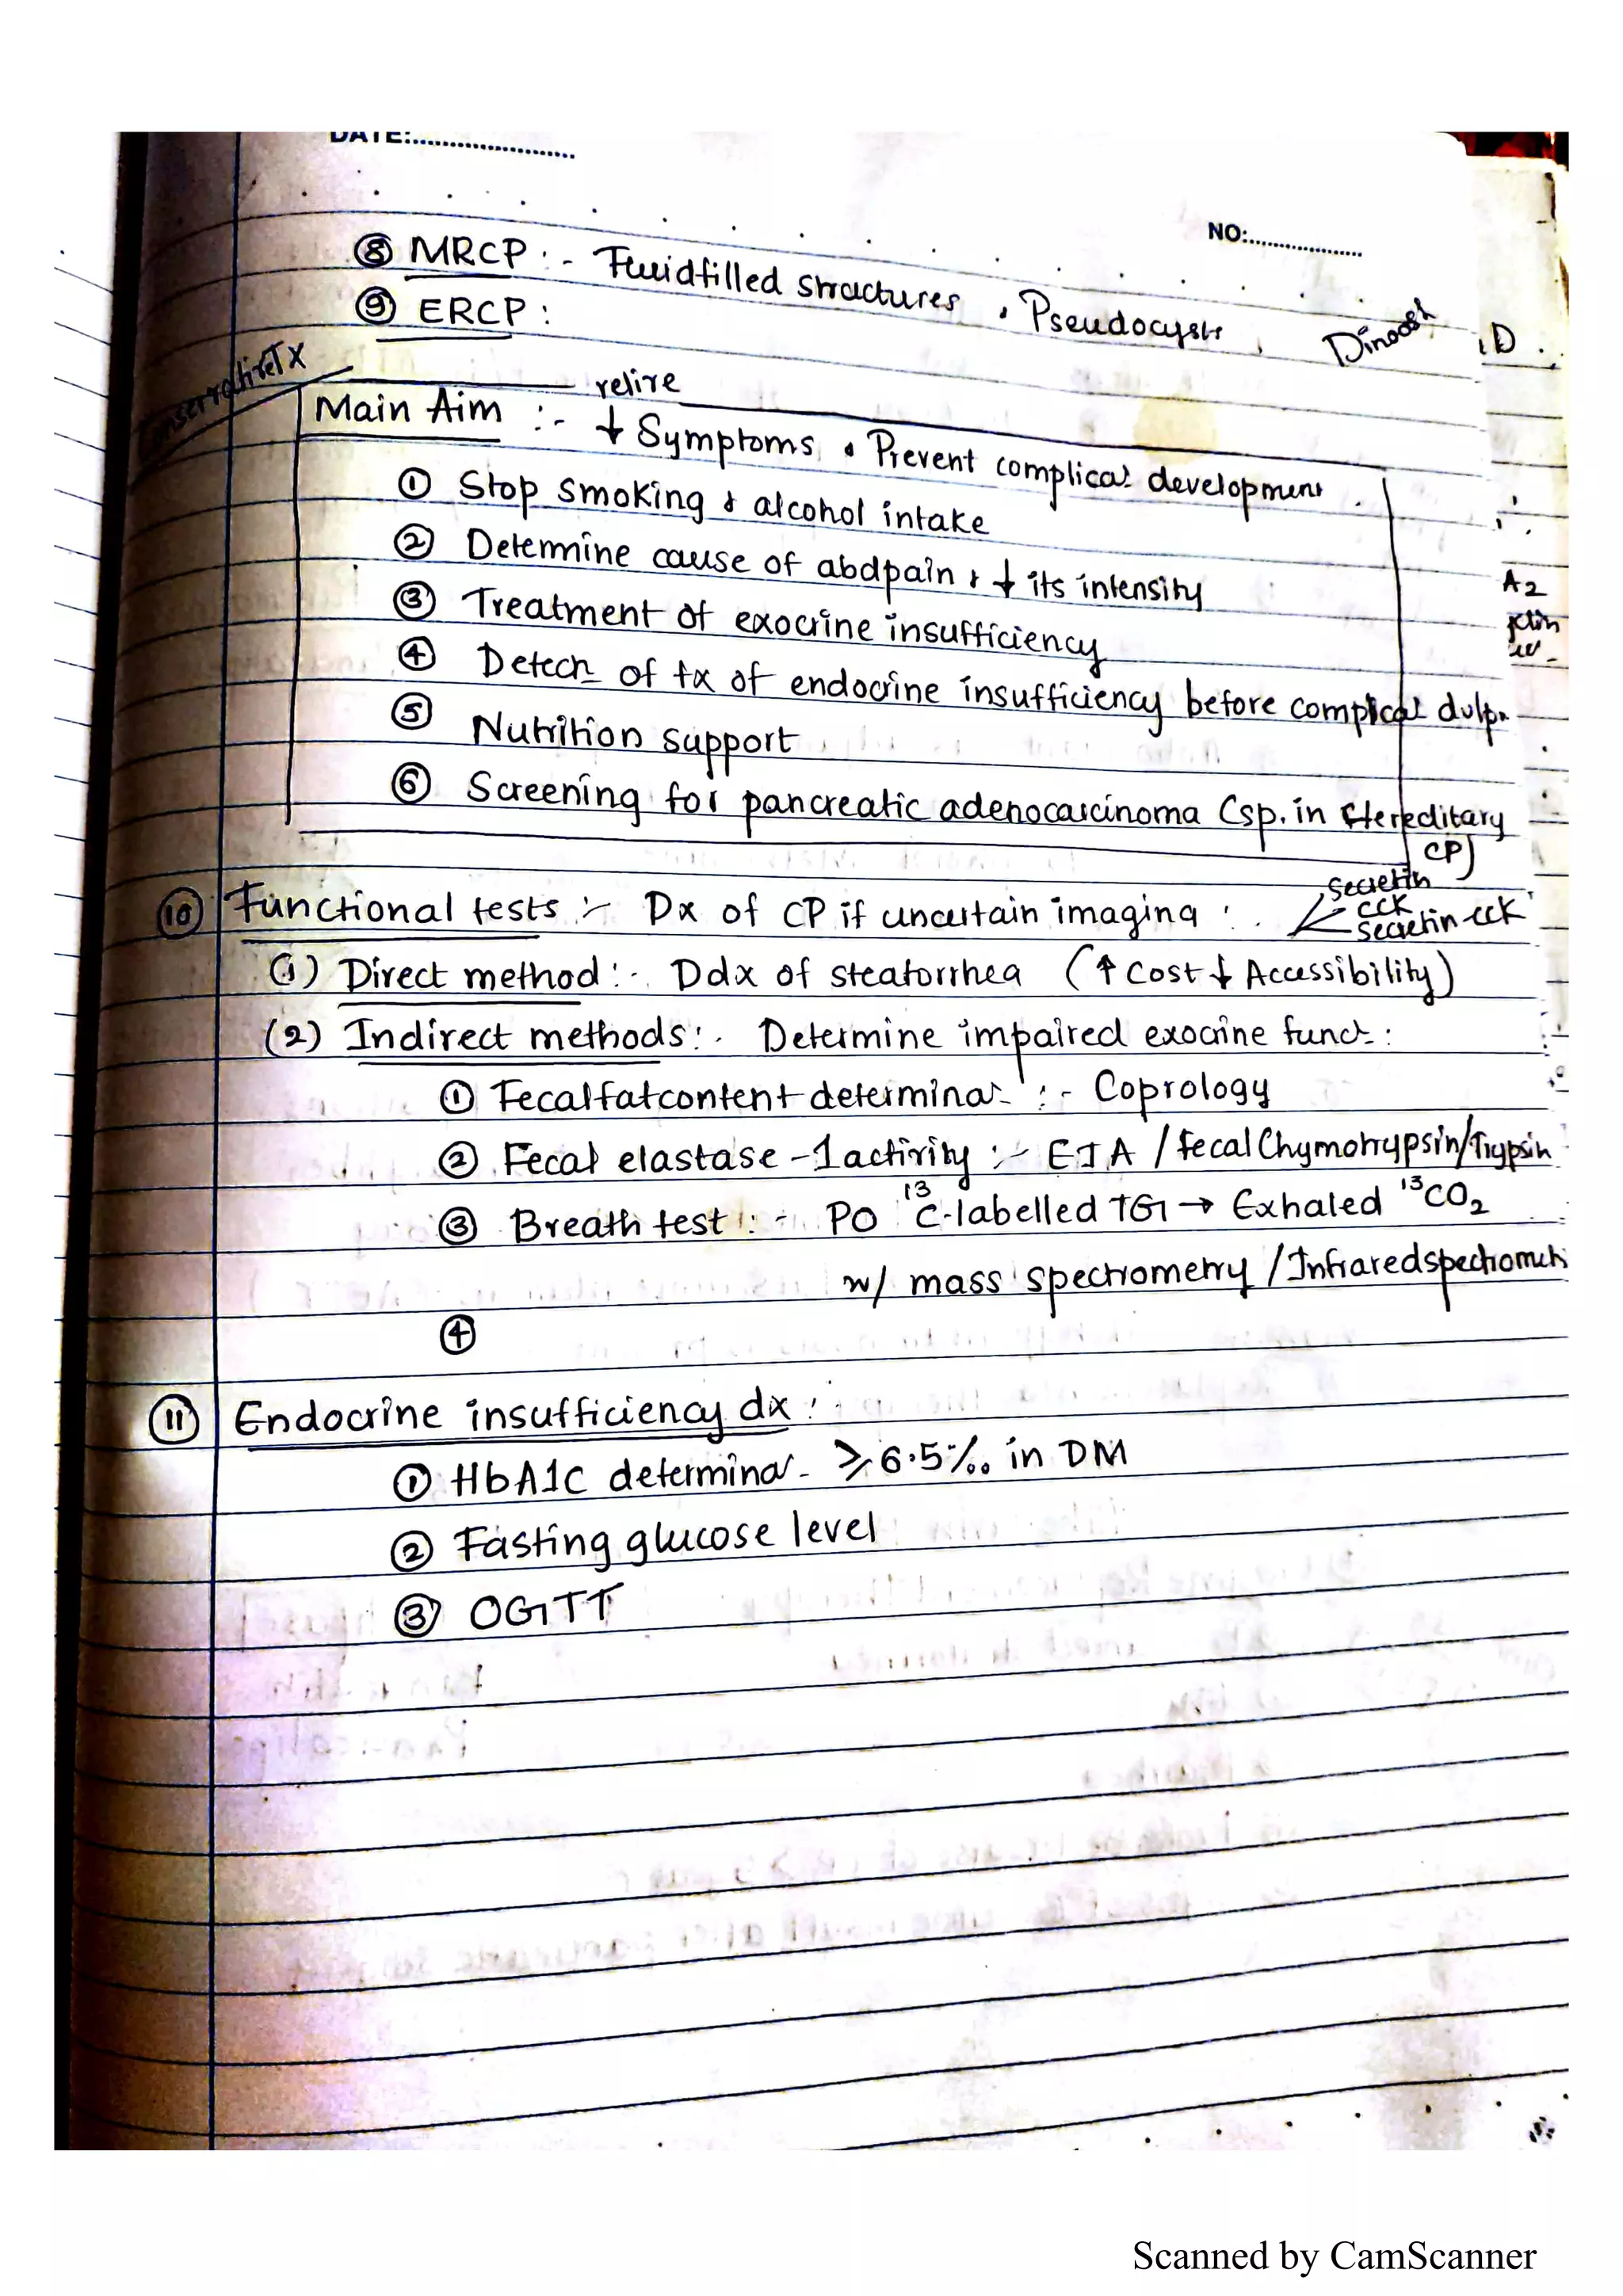 DATE:
NO:
⑧ MRCP :- Fluidfilled structures, Pseudocysts,
⑨ ERCP :
Dinoosh
, D.
relive
Main Aim :- ↓ Symptoms & Prevent complicat development
① Stop smoking & alcohol intake
② Determine cause of abdpain & ↓ its intensity
A2
③ Treatment of exocrine insufficiency
④ Detectn of tx of endocrine insufficiency before complicat dvlpn
⑤ Nutrition support
⑥ Screening for pancreatic adenocarcinoma (sp. in Hereditary
CP)
⑩ Functional tests :- Dx of CP if uncertain imaging :
Secretin
CCK
Secretin-CCK
(1) Direct method :- Ddx of steatorrhea (↑ Cost ↓ Accessibility)
(2) Indirect methods :- Determine impaired exocrine funct :
① Fecalfatcontent determinat- :- Coprology
② Fecal elastase-1 activity :- EIA / fecal Chymotrypsin/Trypsin
③ Breath test :- PO ¹³C-labelled TG → Exhaled ¹³CO₂
w/ mass spectrometry / Infraredspectrometr
④
⑪ Endocrine insufficiency dx :
① HbA1C determinat- ≥ 6.5%. in DM
② Fasting glucose level
③ OGTT
Scanned by CamScanner